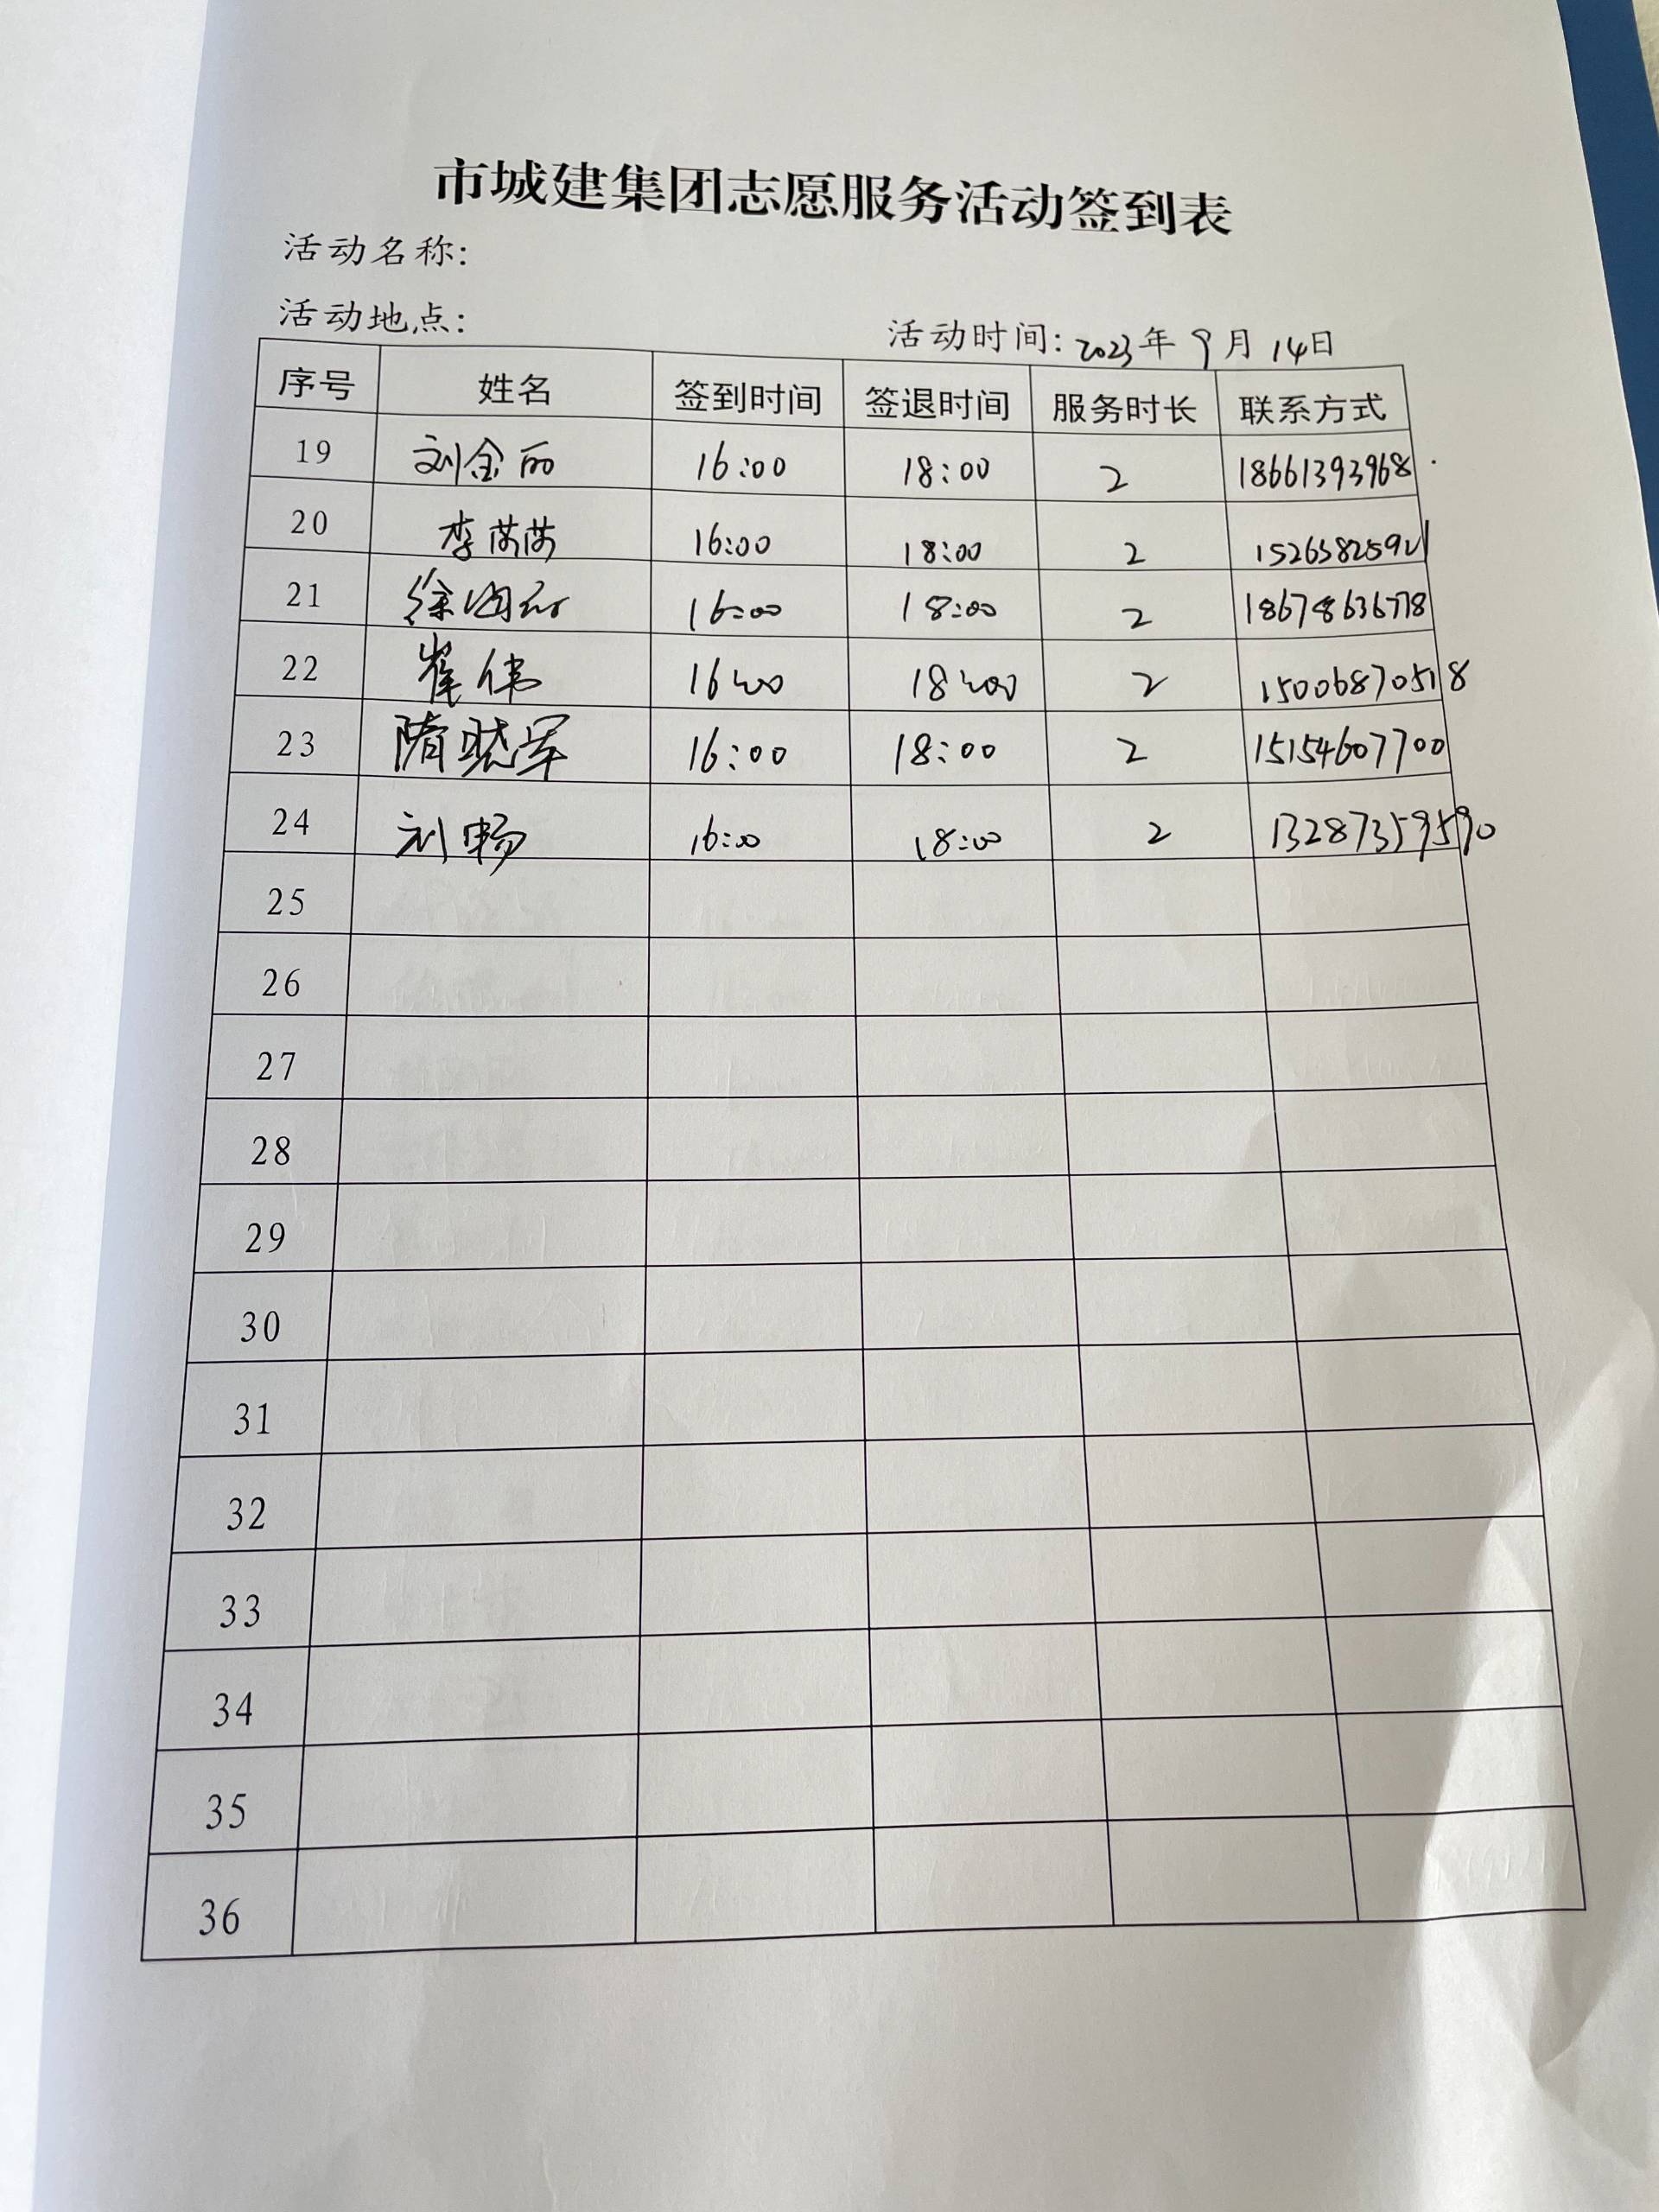 市城建集团志愿服务活动签到表
活动名称:
活动地点:
活动时间: 2023年 9月 14日
序号 姓名 签到时间 签退时间 服务时长 联系方式
19 刘金丽 16:00 18:00 2 18661393968
20 李 16:00 18:00 2
21 徐 16:00 18:00 2 18678636778
22 崔伟 16:00 18:00 2 15006870518
23 隋晓军 16:00 18:00 2 15154607700
24 刘畅 16:00 18:00 2 13287359590
25
26
27
28
29
30
31
32
33
34
35
36